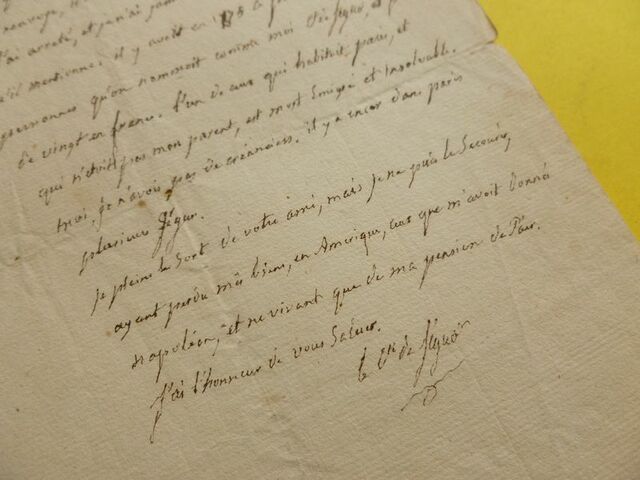 j'ai arreté, et je n'ai jam
il mentionne. il y avoit en
personnes qu'on nommoit comme moi de Ségur, et p
de vingt en france. l'un de ceux qui habitoit paris, et
qui n'étoit pas mon parent, est mort Emigré et Insolvable.
moi, je n'avois pas de créanciers. il y a encor dans paris
plusieurs Ségur.
je plains le Sort de votre ami, mais je ne puis le Secourir,
ayant perdu mes biens, en Amérique, ceux que m'avoit donné
napoléon, et ne vivant que de ma pension de Pair.
J'ai l'honneur de vous Saluer.
le cte de Ségur